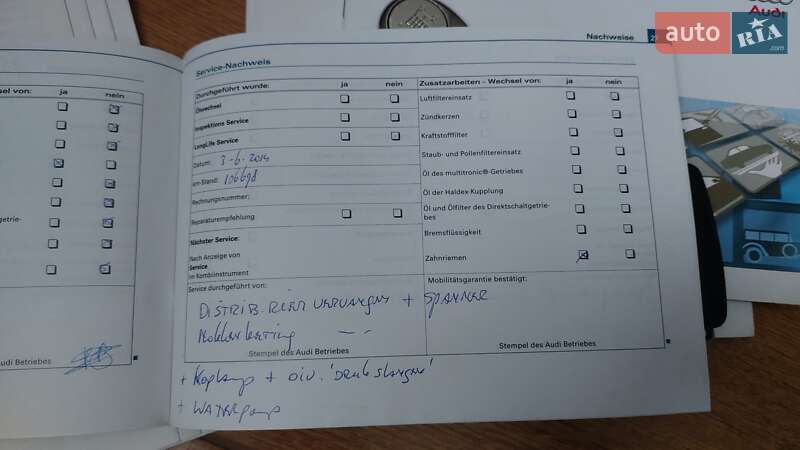 auto RIA .com
Audi
Nachweise 2
Service-Nachweis
sel von: ja nein
Durchgeführt wurde: ja nein
Ölwechsel
Inspektions Service
LongLife Service
Datum: 3-6-2014
km-Stand: 106698
Rechnungsnummer:
Reparaturempfehlung:
Nächster Service:
Nach Anzeige von
Service
im Kombiinstrument
Zusatzarbeiten - Wechsel von: ja nein
Luftfiltereinsatz
Zündkerzen
Kraftstofffilter
Staub- und Pollenfiltereinsatz
Öl des multitronic®-Getriebes
Öl der Haldex Kupplung
Öl und Ölfilter des Direktschaltgetrie-
bes
Bremsflüssigkeit
Zahnriemen
Service durchgeführt von:
Mobilitätsgarantie bestätigt:
DISTRIB. RIEM VERVANGEN + SPANNER
Stempel des Audi Betriebes
Stempel des Audi Betriebes
+ Koplamp + DIV. 'Drukslangen'
+ WATERpomp
getrie-
Audi Betriebes